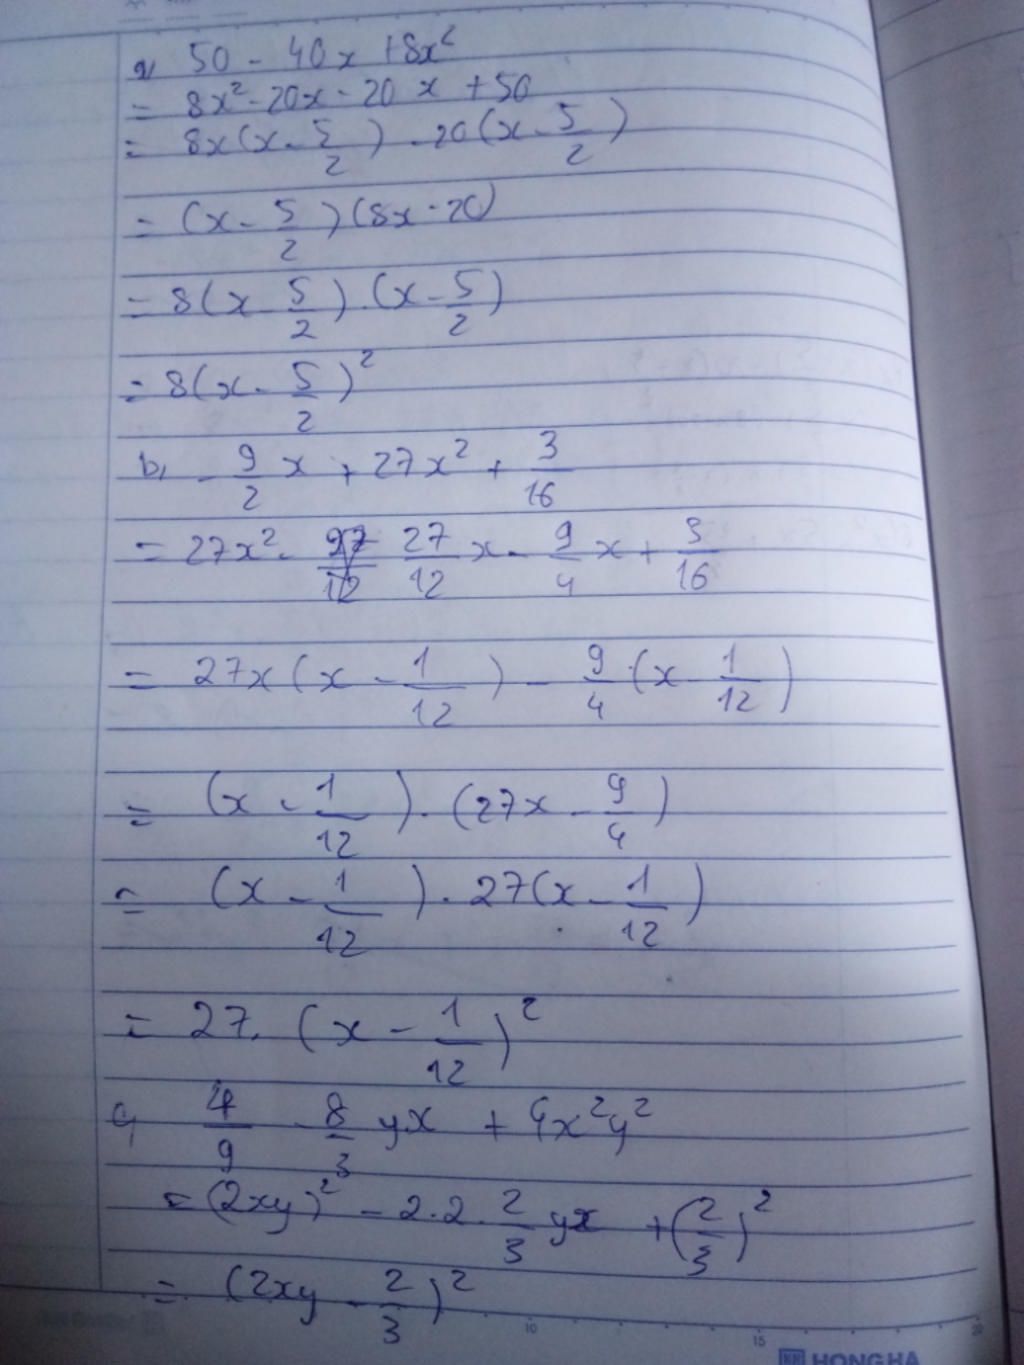 a, 50 - 40x + 8x²
= 8x² - 20x - 20x + 50
= 8x(x - 5/2) - 20(x - 5/2)
= (x - 5/2)(8x - 20)
= 8(x - 5/2).(x - 5/2)
= 8(x - 5/2)²
b, - 9/2 x + 27x² + 3/16
= 27x² - 27/12 x - 9/4 x + 3/16
= 27x(x - 1/12) - 9/4.(x - 1/12)
= (x - 1/12).(27x - 9/4)
= (x - 1/12).27(x - 1/12)
= 27.(x - 1/12)²
c, 4/9 - 8/3 yx + 4x²y²
= (2xy)² - 2.2.2/3 yx + (2/3)²
= (2xy - 2/3)²
10 15 20
HONG HA